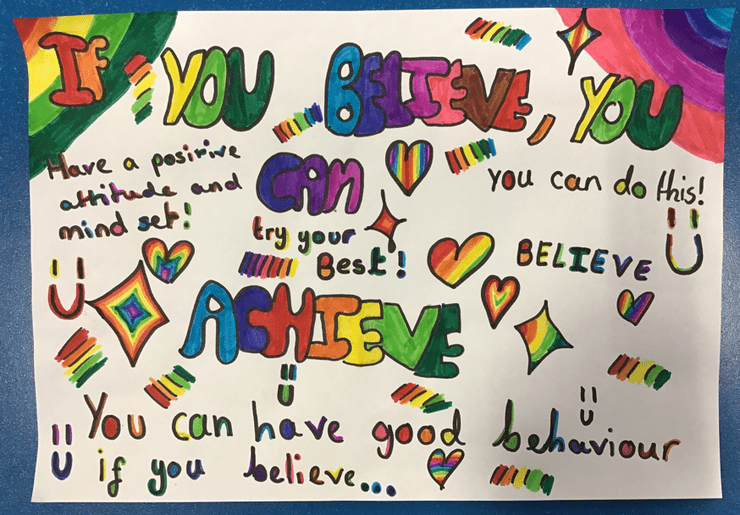 IF YOU BELIEVE, YOU
Have a posirive
attitude and
mind set!
CAN
you can do this!
try your
Best!
BELIEVE
ACHIEVE
You can have good behaviour
if you believe...